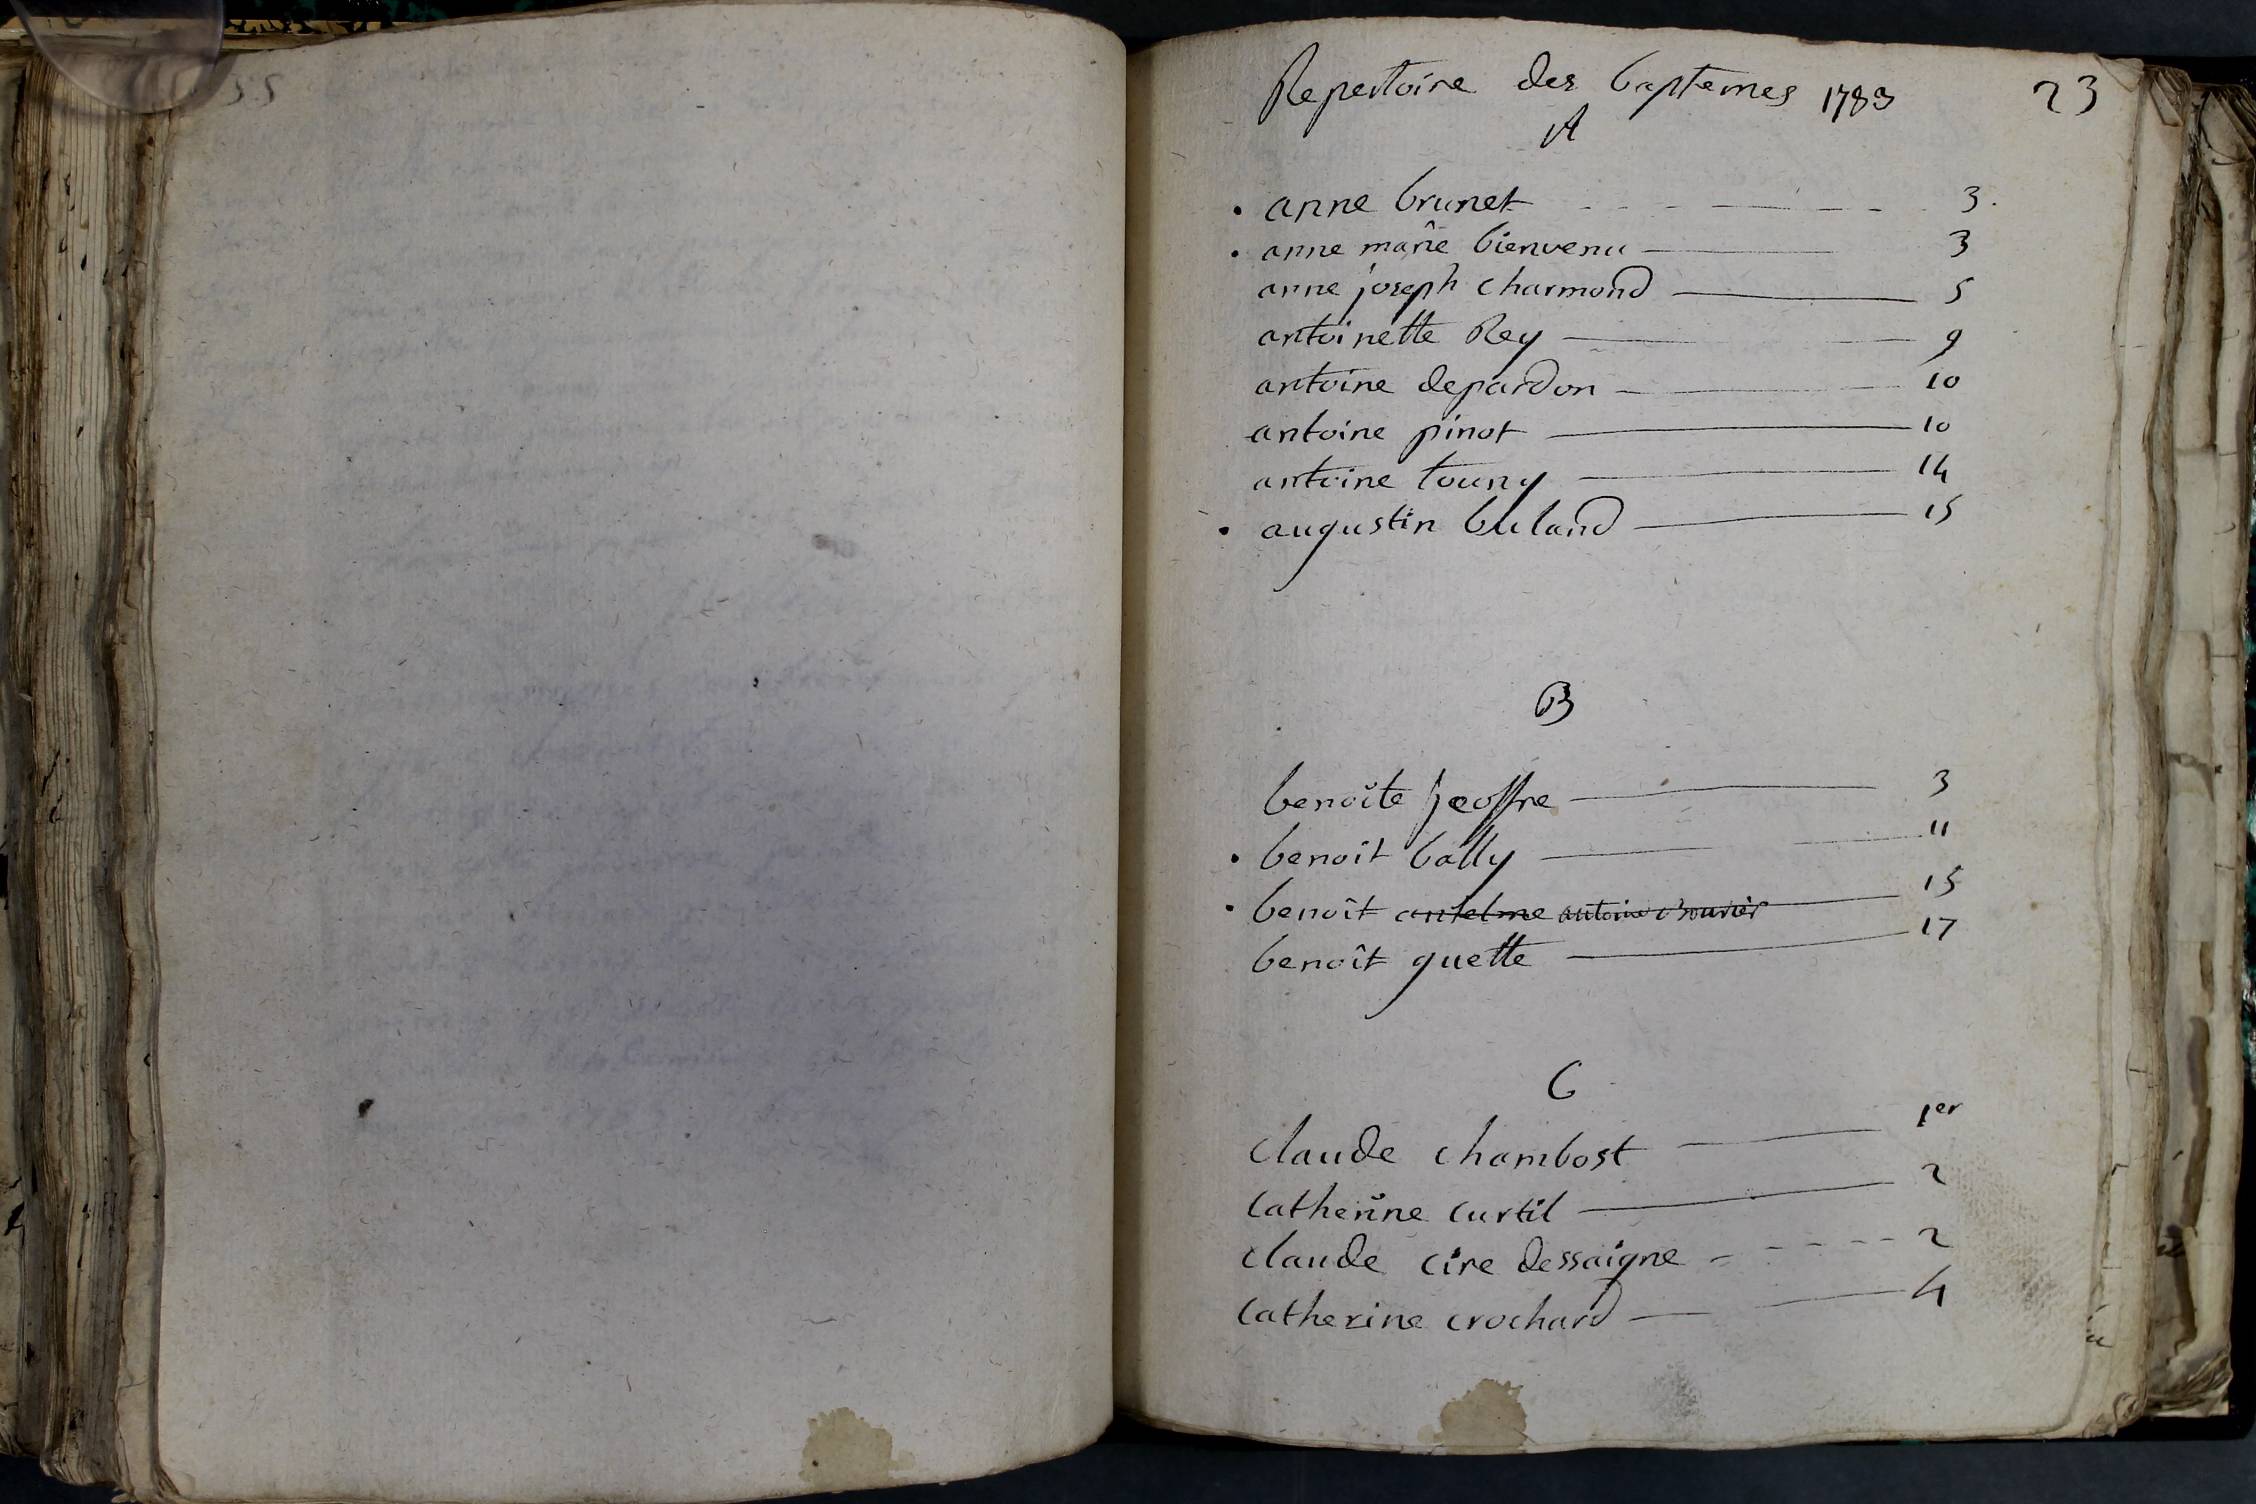 Repertoire des baptemes 1783
23
A
anne brunet 3.
anne marie bienvenu 3
anne joseph charmond 5
antoinette Rey 9
antoine depardon 10
antoine pinot 10
antoine touny 14
augustin buland 15
B
benoîte jeoffre 3
benoit bally 11
benoît antelme antoine 15
benoît guette 17
C
claude chambost 1er
catherine curtil 2
claude cire dessaigne 2
catherine crochard 4